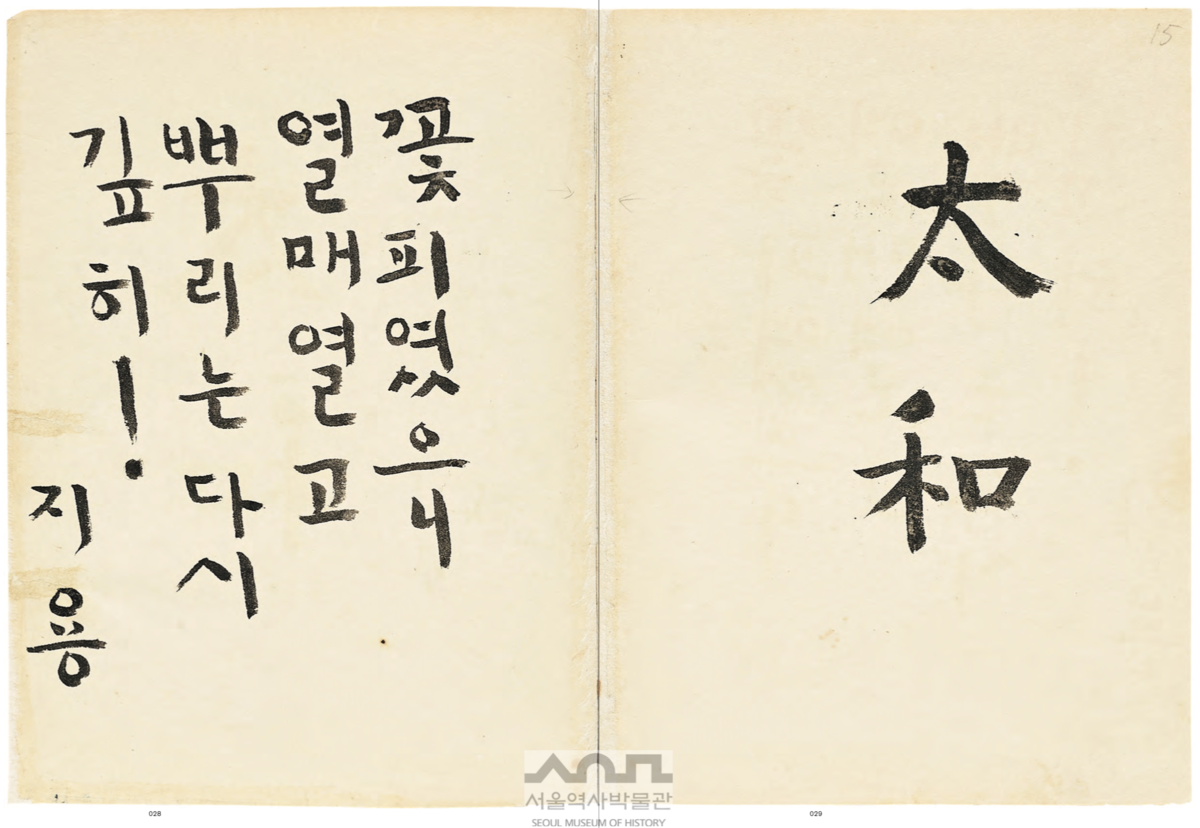 15
太和
꽃피였으니
열매열고
뿌리는다시
깊히!
지용
서울역사박물관
SEOUL MUSEUM OF HISTORY
028
029